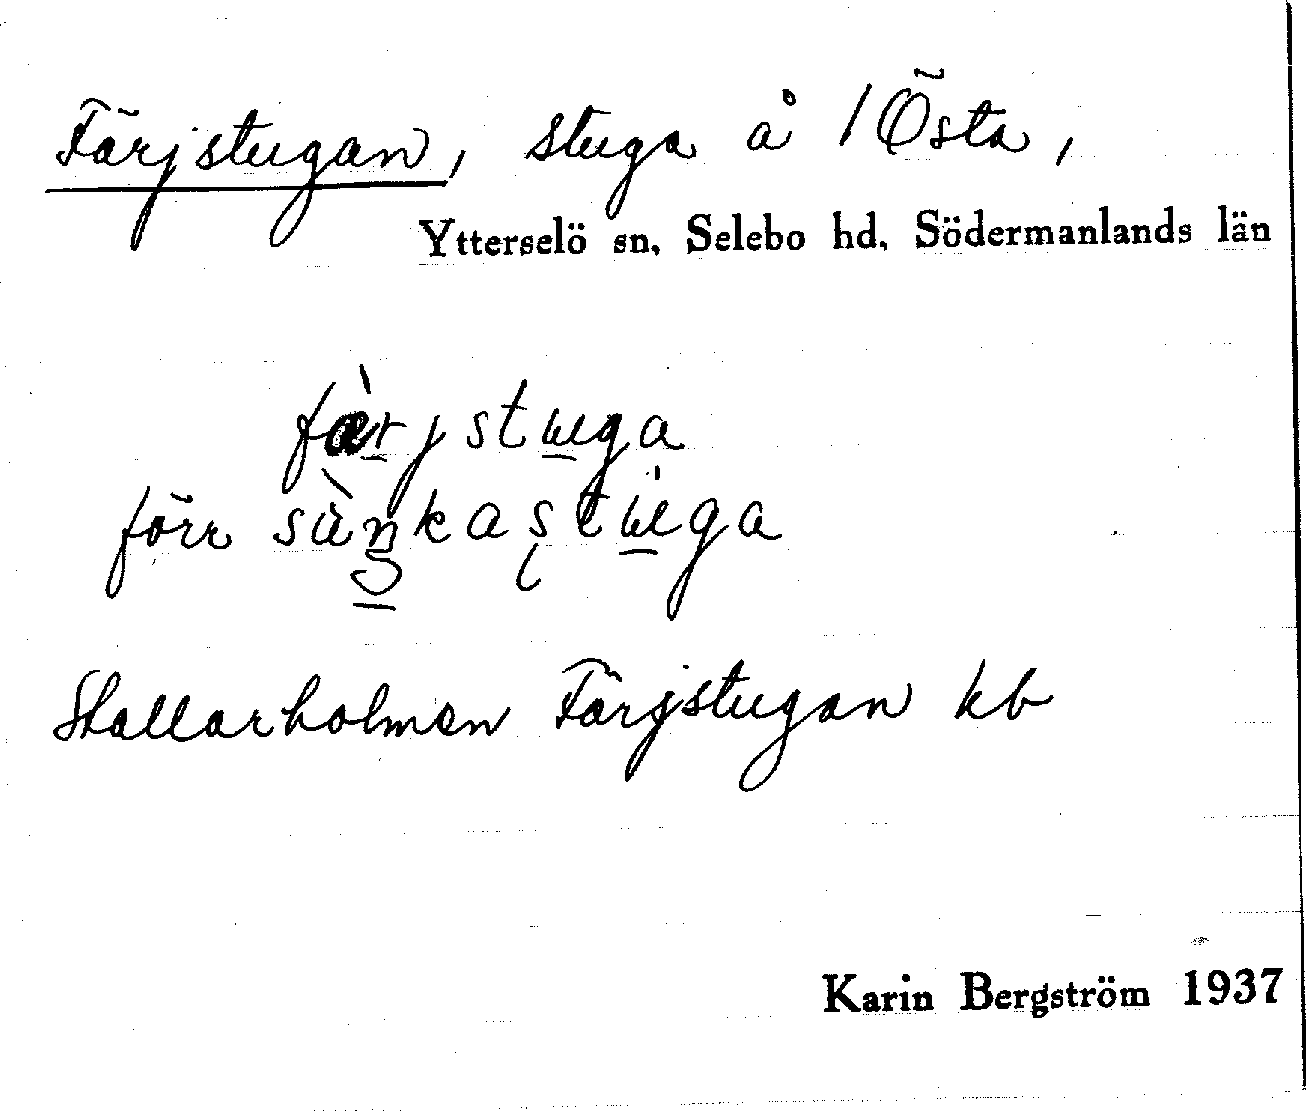 Färjstugan, stuga å 1 Östa,
Ytterselö sn, Selebo hd, Södermanlands län
fæ̀rjstuga
förr sàŋkastuga
Stallarholmen Färjstugan kb
Karin Bergström 1937